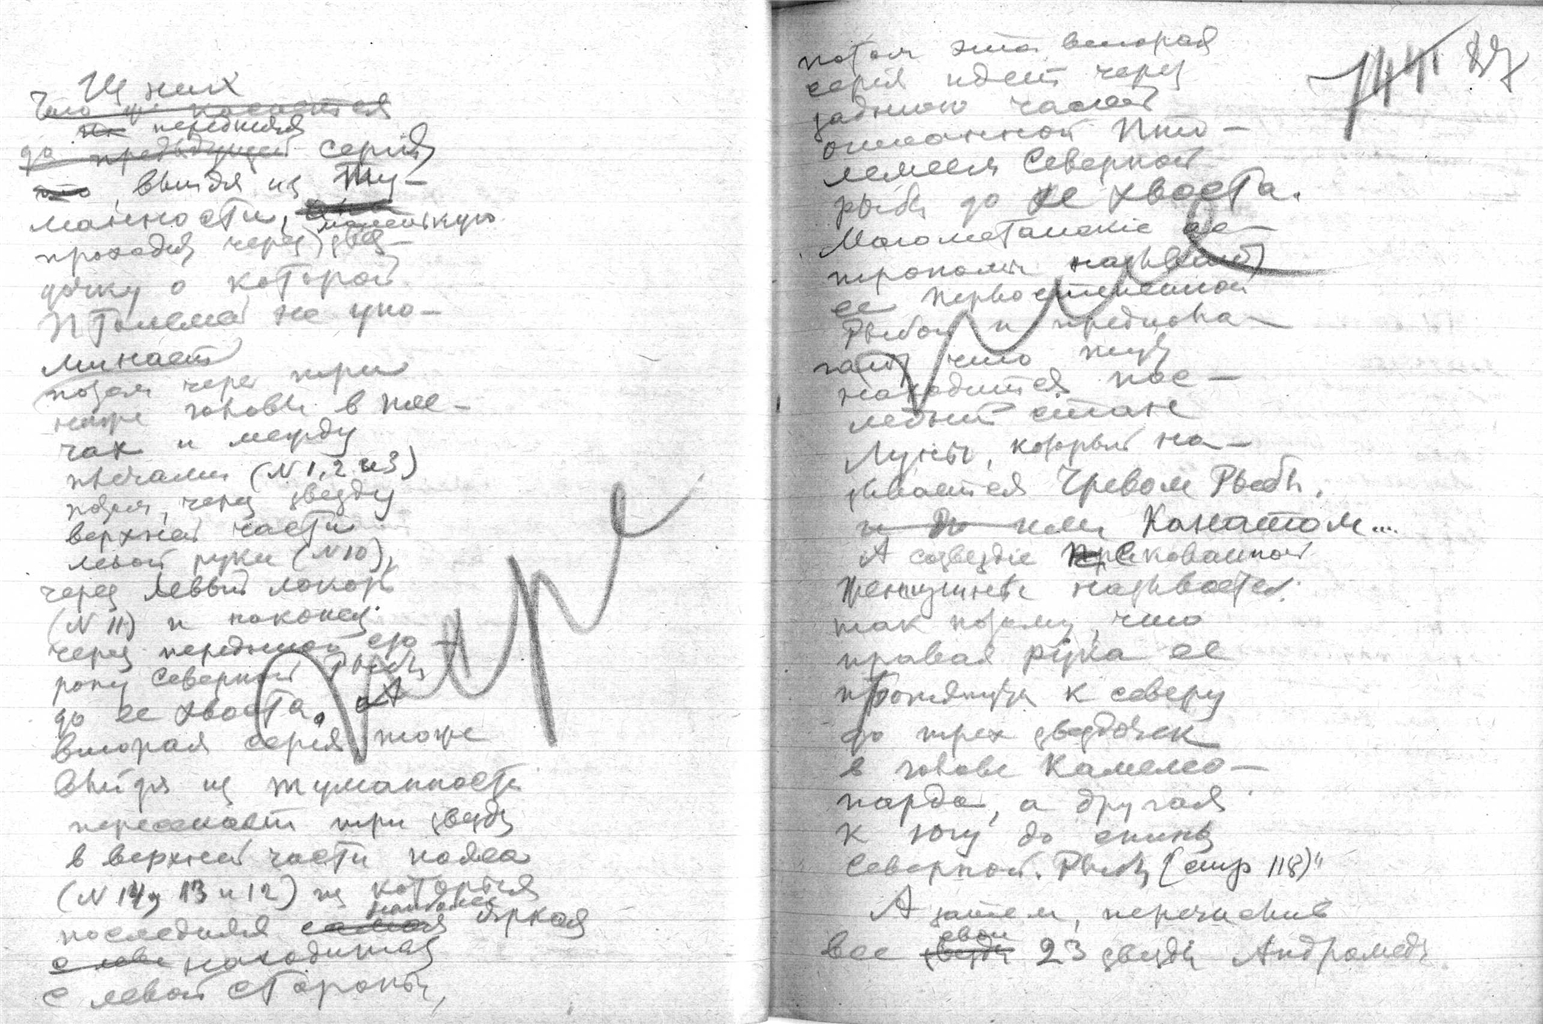 Из них
Что же касается
передняя
до предыдущей серия
то, выйдя из Ту-
манности,
маленькую
проходя через звез-
дочку о которой
Птолемей не упо-
минает
потом через три
ниже головы в пле-
чах и между
плечами (N 1, 2 и 3)
потом, через звезду
верхней части
левой руки (N 10),
через левый локоть
(N 11) и наконец
через переднюю сто-
рону Северной Рыбы
до ее хвоста. А
вторая серия тоже
выйдя из туманности
пересекает три звезды
в верхней части пояса
(N 14, 13 и 12) из которых
наиболее
последняя самая яркая
с лева находится
с левой стороны,
потом эта вторая
серия идет через
заднюю часть
описанной Пто-
лемеем Северной
рыбы до ее хвоста.
Магометанские ас-
трономы называют
ее первостепенной
Рыбой и предпола-
гают что тут
находится пос-
ледний стан
Луны, который на-
зывается Чревом Рыбы,
и до или Канатом...
А созвездие Прикованной
женщины называется
так потому, что
правая рука ее
протянута к северу
до трех звездочек
в голове Камело-
парда, а другая
к югу до спины
Северной Рыбы (стр 118)"
А затем, перечислив
свои
все звезды 23 звезды Андромеды
144 87